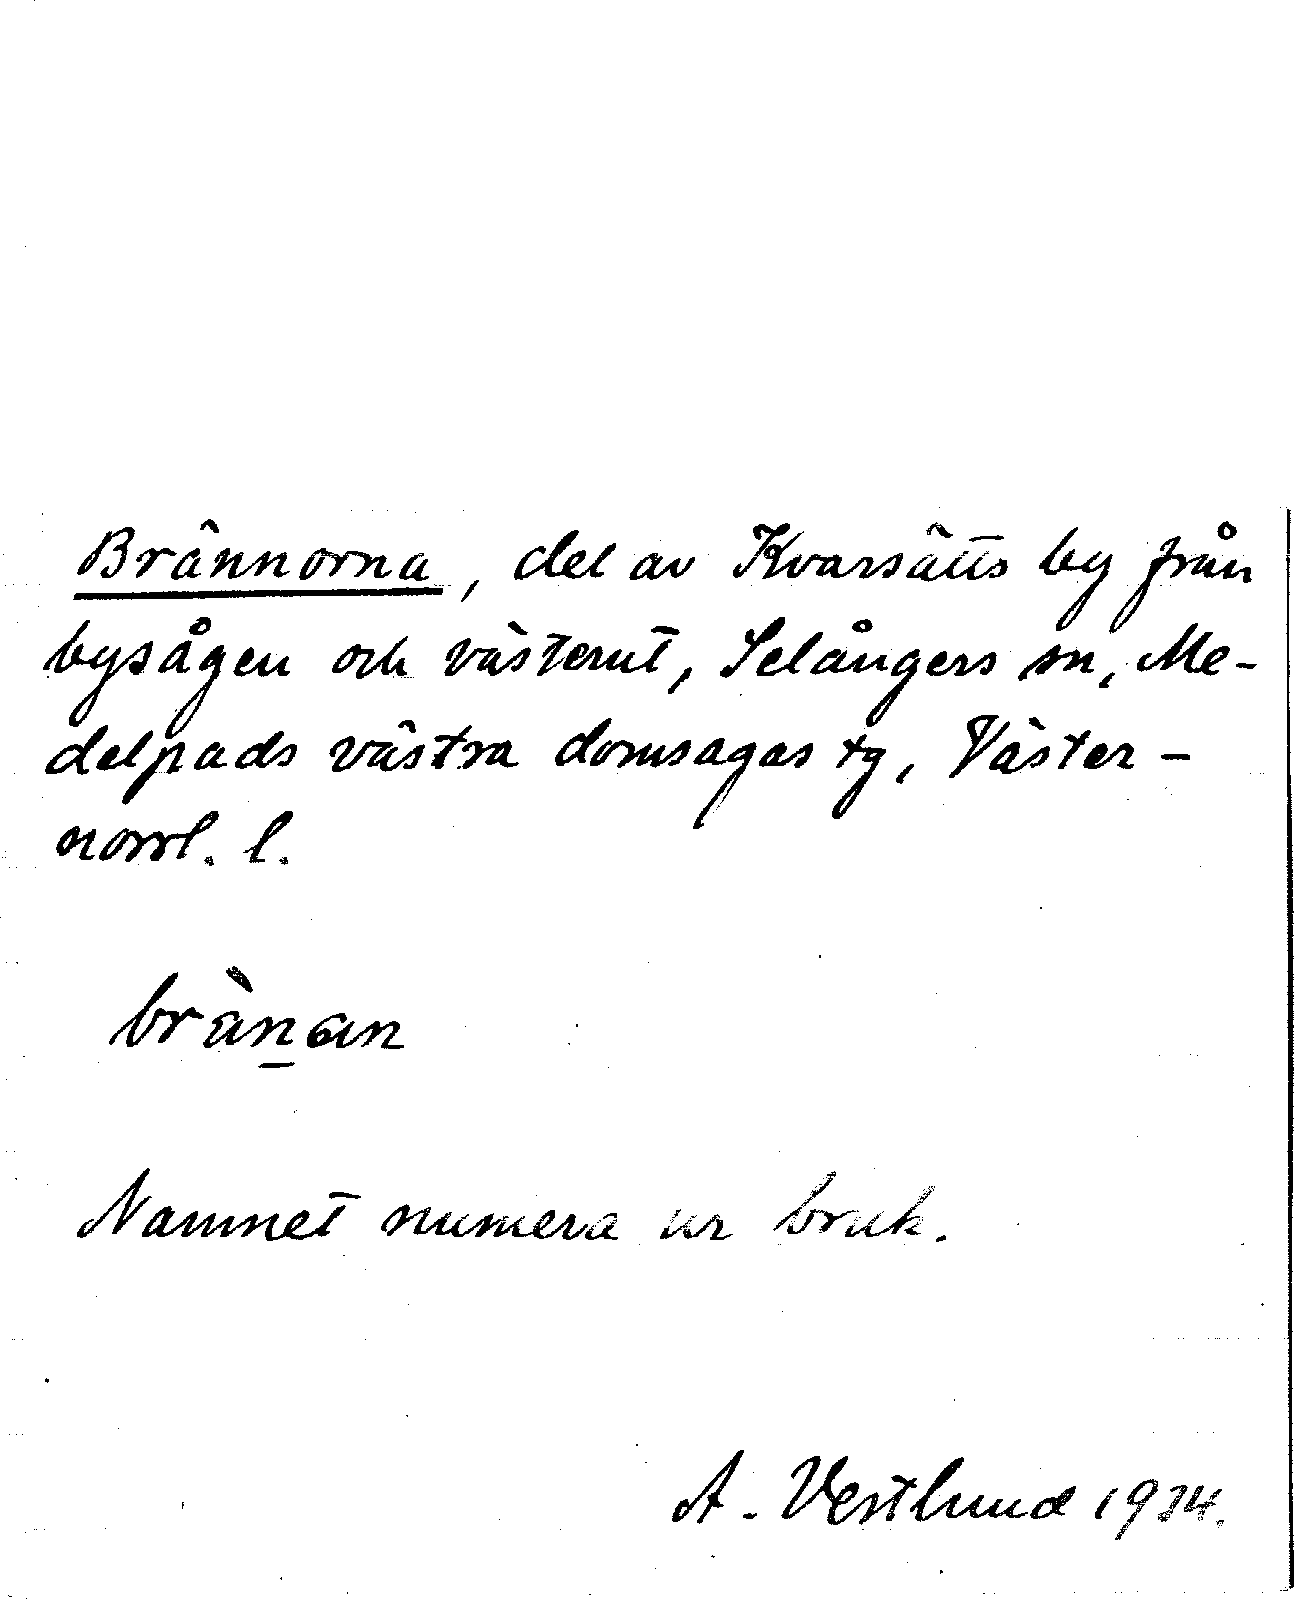 Brännorna, del av Kvarsätts by från
bysågen och västerut, Selångers sn, Me-
delpads västra domsagas tg, Väster-
norrl. l.
brä̀n̲an
Namnet numera ur bruk.
A. Vestlund 1934.